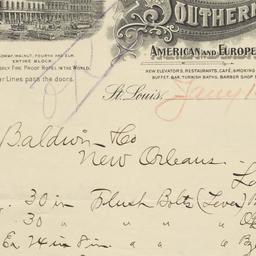 Southern
American and Europe
Broadway, Walnut, Fourth and Elm.
Entire Block.
Only Fire Proof Hotel in the World.
er Lines pass the doors.
New Elevators, Restaurants, Café, Smoking
Buffet, Bar, Turkish Baths, Barber Shop
St. Louis, Jany 1
Baldwin Co
New Orleans.
30 in Flush Bolts (Lever) B
30 " " "
Ea 24 in 8 in. "